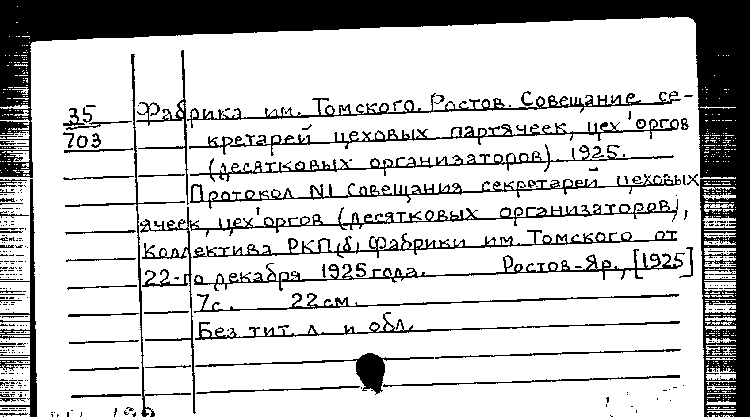 35 Фабрика им. Томского. Ростов. Совещание се-
703 кретарей цеховых партячеек, цех'оргов
(десятковых организаторов). 1925.
Протокол N1 Совещания секретарей цеховых
ячеек, цех'оргов (десятковых организаторов),
Коллектива РКП(б) Фабрики им. Томского от
22-го декабря 1925 года. Ростов-Яр., [1925]
7с. 22 см.
Без тит. л. и обл.